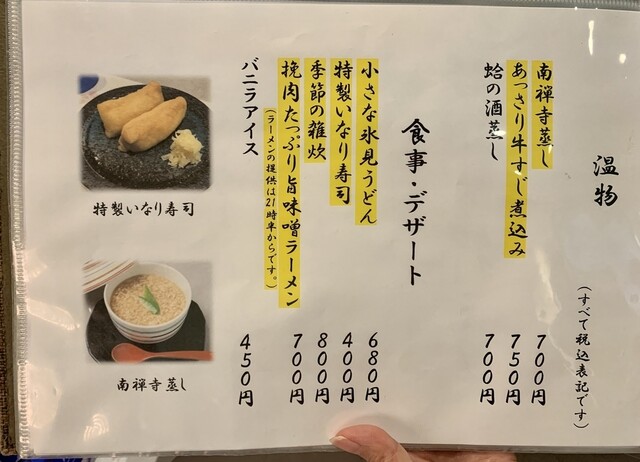 温物
（すべて税込表記です）
南禅寺蒸し 700円
あっさり牛すじ煮込み 750円
蛤の酒蒸し 700円
食事・デザート
小さな氷見うどん 680円
特製いなり寿司 400円
季節の雑炊 800円
挽肉たっぷり旨味噌ラーメン 700円
（ラーメンの提供は21時半からです。）
バニラアイス 450円
特製いなり寿司
南禅寺蒸し